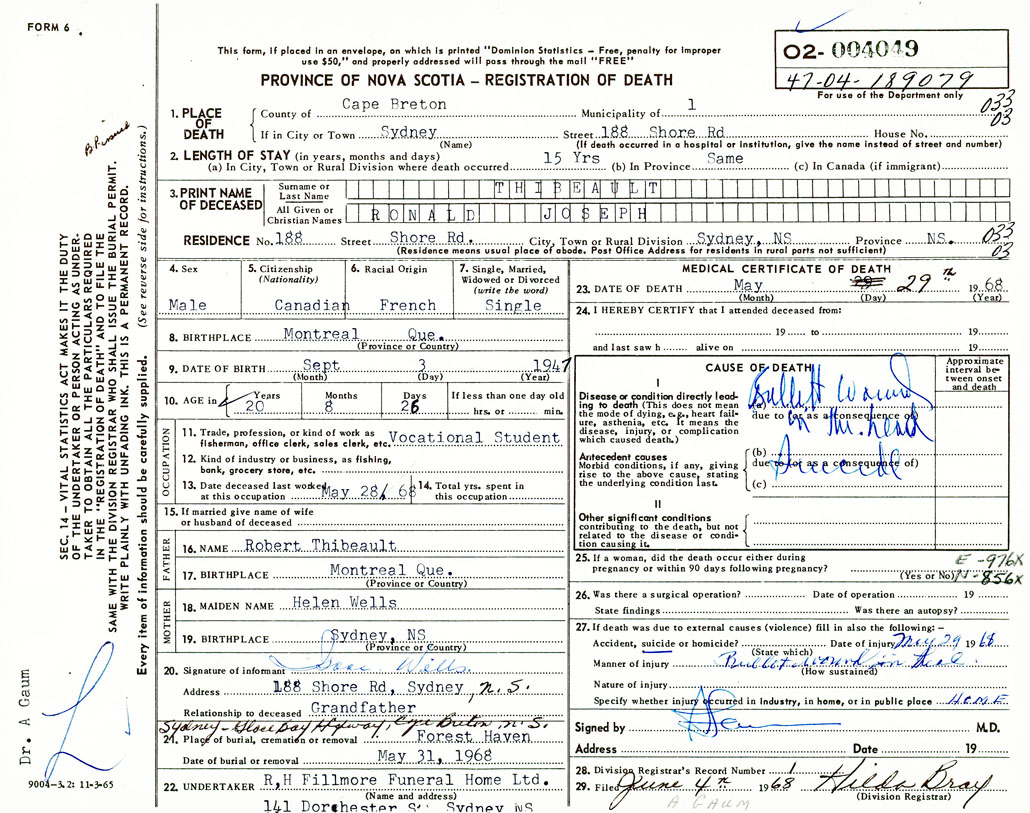 FORM 6
This form, if placed in an envelope, on which is printed "Dominion Statistics – Free, penalty for improper
use $50," and properly addressed will pass through the mail "FREE"
PROVINCE OF NOVA SCOTIA – REGISTRATION OF DEATH
02- 004049
47-04-189079
For use of the Department only
033
03
1. PLACE OF DEATH
County of Cape Breton Municipality of 1
If in City or Town Sydney Street 188 Shore Rd House No.
(Name) (If death occurred in a hospital or institution, give the name instead of street and number)
2. LENGTH OF STAY (in years, months and days) 15 Yrs Same
(a) In City, Town or Rural Division where death occurred (b) In Province (c) In Canada (if immigrant)
3. PRINT NAME OF DECEASED
Surname or Last Name THIBEAULT
All Given or Christian Names RONALD JOSEPH
RESIDENCE No. 188 Street Shore Rd. City, Town or Rural Division Sydney, NS Province NS. 033
03
(Residence means usual place of abode. Post Office Address for residents in rural parts not sufficient)
4. Sex
Male
5. Citizenship
(Nationality)
Canadian
6. Racial Origin
French
7. Single, Married,
Widowed or Divorced
(write the word)
Single
8. BIRTHPLACE Montreal Que.
(Province or Country)
9. DATE OF BIRTH Sept 3 1947
(Month) (Day) (Year)
10. AGE in Years Months Days If less than one day old
20 8 26 hrs. or min.
OCCUPATION
11. Trade, profession, or kind of work as
fisherman, office clerk, sales clerk, etc. Vocational Student
12. Kind of industry or business, as fishing,
bank, grocery store, etc.
13. Date deceased last worked
at this occupation May 28/ 68
14. Total yrs. spent in
this occupation
15. If married give name of wife
or husband of deceased
FATHER
16. NAME Robert Thibeault
17. BIRTHPLACE Montreal Que.
(Province or Country)
MOTHER
18. MAIDEN NAME Helen Wells
19. BIRTHPLACE Sydney, NS
(Province or Country)
20. Signature of informant Isaac Wells.
Address 188 Shore Rd, Sydney, N.S.
Relationship to deceased Grandfather
Sydney - Glace Bay Highway, Cape Breton, N.S.
21. Place of burial, cremation or removal Forest Haven
Date of burial or removal May 31, 1968
22. UNDERTAKER R,H Fillmore Funeral Home Ltd.
(Name and address)
141 Dorchester St Sydney NS
MEDICAL CERTIFICATE OF DEATH
23. DATE OF DEATH May 29th 1968
(Month) (Day) (Year)
24. I HEREBY CERTIFY that I attended deceased from:
19 to 19
and last saw h alive on 19
CAUSE OF DEATH
Approximate
interval be-
tween onset
and death
I
Disease or condition directly lead-
ing to death (This does not mean
the mode of dying, e.g., heart fail-
ure, asthenia, etc. It means the
disease, injury, or complication
which caused death.)
(a) Bullet Wound
due to (or as a consequence of)
in the head
Antecedent causes
Morbid conditions, if any, giving
rise to the above cause, stating
the underlying condition last.
(b)
due to (or as a consequence of)
Suicide
(c)
II
Other significant conditions
contributing to the death, but not
related to the disease or condi-
tion causing it.
25. If a woman, did the death occur either during
pregnancy or within 90 days following pregnancy?
(Yes or No)
E -976X
N -856X
26. Was there a surgical operation? Date of operation 19
State findings Was there an autopsy?
27. If death was due to external causes (violence) fill in also the following: –
Accident, suicide or homicide? Date of injury May 29 1968
(State which)
Manner of injury Bullet wound in head.
(How sustained)
Nature of injury
Specify whether injury occurred in industry, in home, or in public place HOME
Signed by M.D.
Address Date 19
28. Division Registrar's Record Number 1
29. Filed June 4th 1968 Hilda Bray
(Division Registrar)
A GAUM
SEC. 14 – VITAL STATISTICS ACT MAKES IT THE DUTY
OF THE UNDERTAKER OR PERSON ACTING AS UNDER-
TAKER TO OBTAIN ALL THE PARTICULARS REQUIRED
IN THE "REGISTRATION OF DEATH" AND TO FILE THE
SAME WITH THE DIVISION REGISTRAR WHO SHALL ISSUE THE BURIAL PERMIT.
WRITE PLAINLY WITH UNFADING INK. THIS IS A PERMANENT RECORD.
Every item of information should be carefully supplied. (See reverse side for instructions.)
Dr. A Gaum
9004-3.2: 11-3-65